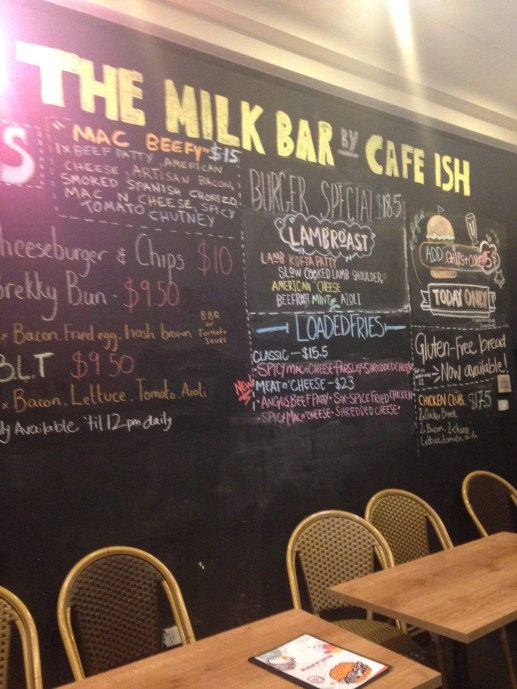 THE MILK BAR BY CAFE ISH
S
"MAC BEEFY" $15
1x BEEF PATTY, AMERICAN
CHEESE, ARTISAN BACON,
SMOKED SPANISH CHORIZO
MAC N CHEESE, SPICY
TOMATO CHUTNEY
Cheeseburger & Chips $10
Brekky Bun - $9.50
x Bacon, Fried egg, hash brown
BBQ or Tomato Sauce
BLT $9.50
x Bacon, Lettuce, Tomato, Aioli
Available 'til 12pm daily
BURGER SPECIAL $18.5
LAMBROAST
LAMB KOFTA PATTY
SLOW COOKED LAMB SHOULDER
AMERICAN CHEESE
MINT AIOLI
LOADED FRIES
CLASSIC - $15.5
SPICY MAC n' CHEESE PARSLEY SHREDDED CHEESE
NEW
MEAT n' CHEESE - $23
ANGUS BEEF PATTY • SIX-SPICE FRIED CHICKEN
SPICY MAC n' CHEESE • SHREDDED CHEESE •
ADD CHIPS + $5
TODAY ONLY!
Gluten-Free bread
Now available!
CHICKEN CLUB $17.5
2x Chicken Breast
2x Bacon, 2x cheese
Lettuce, tomato, aioli